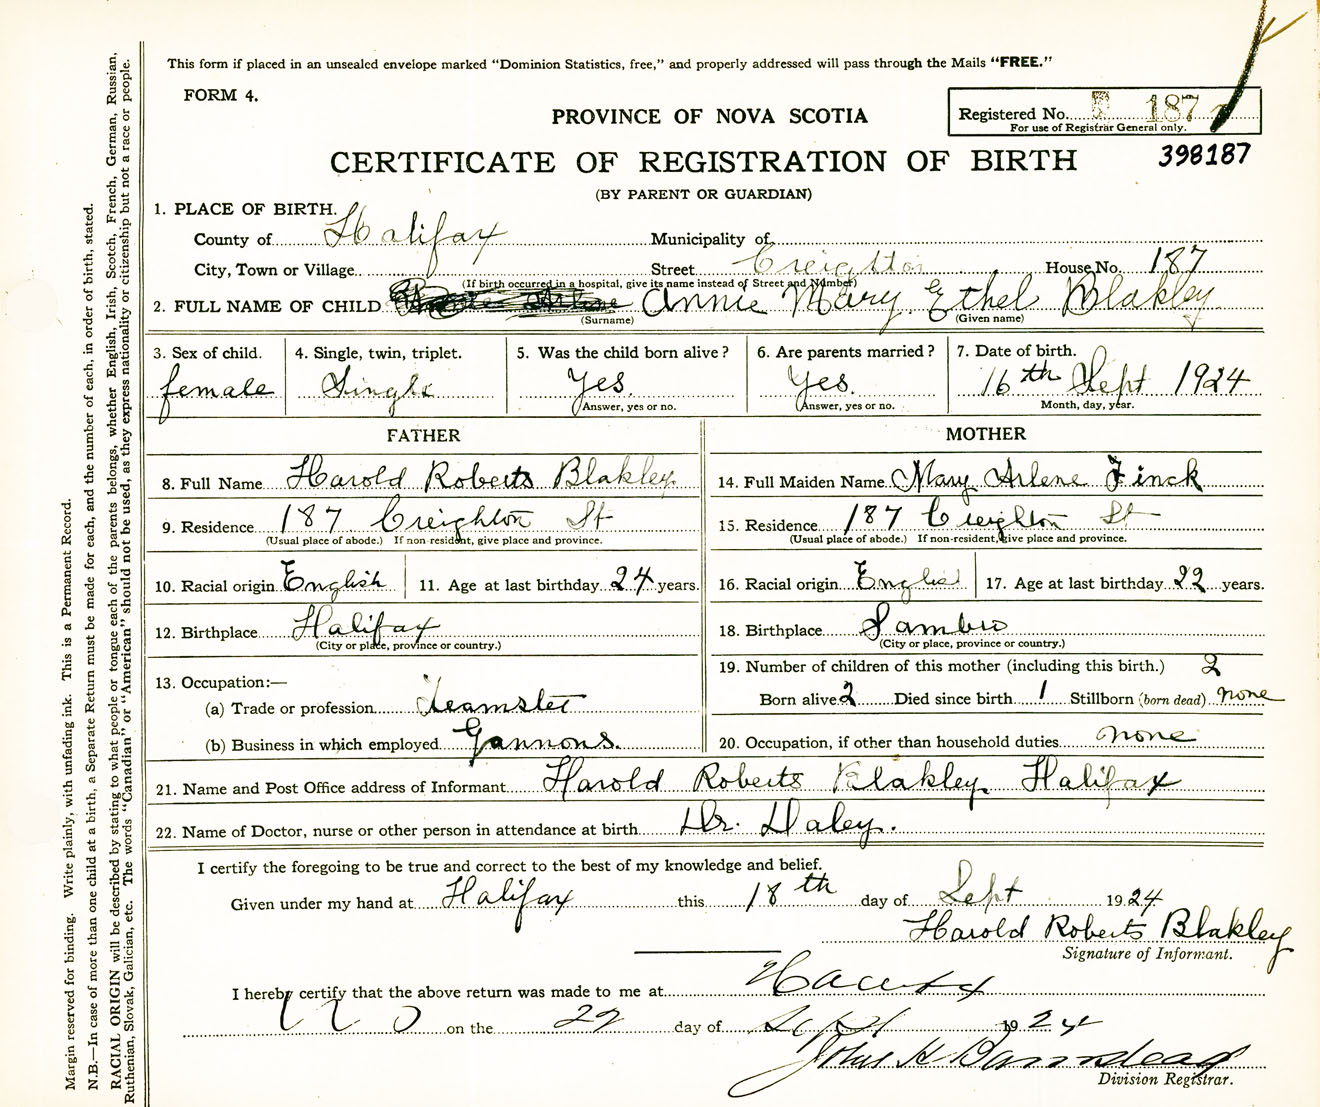 This form if placed in an unsealed envelope marked "Dominion Statistics, free," and properly addressed will pass through the Mails "FREE."
FORM 4.
PROVINCE OF NOVA SCOTIA
Registered No. 187
For use of Registrar General only.
CERTIFICATE OF REGISTRATION OF BIRTH
398187
(BY PARENT OR GUARDIAN)
1. PLACE OF BIRTH.
County of Halifax Municipality of
City, Town or Village Street Creighton House No. 187
(If birth occurred in a hospital, give its name instead of Street and Number)
2. FULL NAME OF CHILD Annie Mary Ethel Blakley
(Surname) (Given name)
3. Sex of child. 4. Single, twin, triplet. 5. Was the child born alive? 6. Are parents married? 7. Date of birth.
female Single Yes. Yes. 16th Sept 1924
(Answer, yes or no. (Answer, yes or no. Month, day, year.
FATHER
8. Full Name Harold Roberts Blakley
9. Residence 187 Creighton St
(Usual place of abode.) If non-resident, give place and province.
10. Racial origin English 11. Age at last birthday 24 years.
12. Birthplace Halifax
(City or place, province or country.)
13. Occupation:—
(a) Trade or profession Teamster
(b) Business in which employed Gannons.
MOTHER
14. Full Maiden Name Mary Arlene Finck
15. Residence 187 Creighton St
(Usual place of abode.) If non-resident, give place and province.
16. Racial origin English 17. Age at last birthday 22 years.
18. Birthplace Sambro
(City or place, province or country.)
19. Number of children of this mother (including this birth.) 2
Born alive 2 Died since birth 1 Stillborn (born dead) none
20. Occupation, if other than household duties none
21. Name and Post Office address of Informant Harold Roberts Blakley Halifax
22. Name of Doctor, nurse or other person in attendance at birth Dr. Daley.
I certify the foregoing to be true and correct to the best of my knowledge and belief.
Given under my hand at Halifax this 18th day of Sept 1924
Harold Roberts Blakley
Signature of Informant.
I hereby certify that the above return was made to me at Halifax
on the 22 day of Sept 1924
John H Barnstead
Division Registrar.
Margin reserved for binding. Write plainly, with unfading ink. This is a Permanent Record.
N.B.—In case of more than one child at a birth, a Separate Return must be made for each, and the number of each, in order of birth, stated.
RACIAL ORIGIN will be described by stating to what people or tongue each of the parents belongs, whether English, Irish, Scotch, French, German, Russian,
Ruthenian, Slovak, Galician, etc. The words "Canadian" or "American" should not be used, as they express nationality or citizenship but not a race or people.